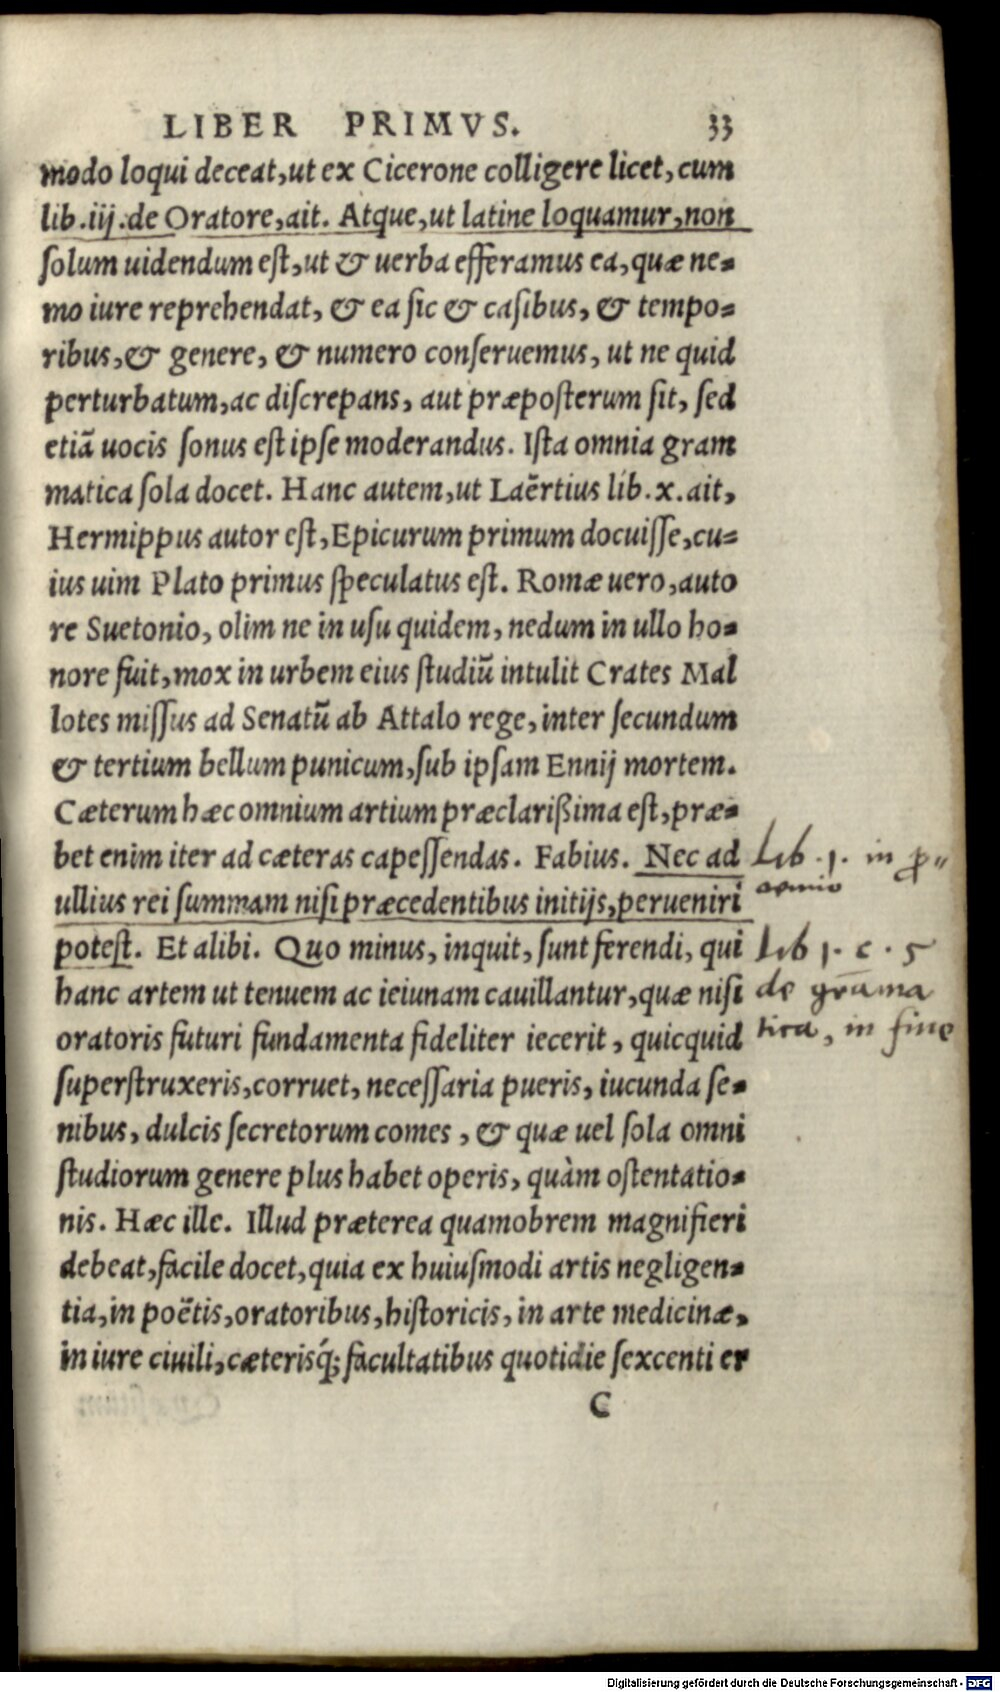 LIBER PRIMVS. 33
modo loqui deceat, ut ex Cicerone colligere licet, cum
lib. iij. de Oratore, ait. Atque, ut latine loquamur, non
ſolum uidendum eſt, ut & uerba efferamus ea, quæ ne-
mo iure reprehendat, & ea ſic & caſibus, & tempo-
ribus, & genere, & numero conſeruemus, ut ne quid
perturbatum, ac diſcrepans, aut præpoſterum ſit, ſed
etiā uocis ſonus eſt ipſe moderandus. Iſta omnia gram
matica ſola docet. Hanc autem, ut Laërtius lib. x. ait,
Hermippus autor eſt, Epicurum primum docuiſſe, cu-
ius uim Plato primus ſpeculatus eſt. Romæ uero, auto
re Suetonio, olim ne in uſu quidem, nedum in ullo ho-
nore fuit, mox in urbem eius ſtudiū intulit Crates Mal
lotes miſſus ad Senatū ab Attalo rege, inter ſecundum
& tertium bellum punicum, ſub ipſam Ennij mortem.
Cæterum hæc omnium artium præclariſsima eſt, præ-
bet enim iter ad cæteras capeſſendas. Fabius. Nec ad
ullius rei ſummam niſi præcedentibus initijs, perueniri
poteſt. Et alibi. Quo minus, inquit, ſunt ferendi, qui
hanc artem ut tenuem ac ieiunam cauillantur, quæ niſi
oratoris futuri fundamenta fideliter iecerit, quicquid
ſuperſtruxeris, corruet, neceſſaria pueris, iucunda ſe-
nibus, dulcis ſecretorum comes, & quæ uel ſola omni
ſtudiorum genere plus habet operis, quàm oſtentatio-
nis. Hæc ille. Illud præterea quamobrem magnifieri
debeat, facile docet, quia ex huiuſmodi artis negligen-
tia, in poëtis, oratoribus, hiſtoricis, in arte medicinæ,
in iure ciuili, cæterisq́; facultatibus quotidie ſexcenti er
C
Lib. 1. in p̄-
oemio
Lib 1. c. 5
de grāma
tica, in fine
Digitalisierung gefördert durch die Deutsche Forschungsgemeinschaft - DFG